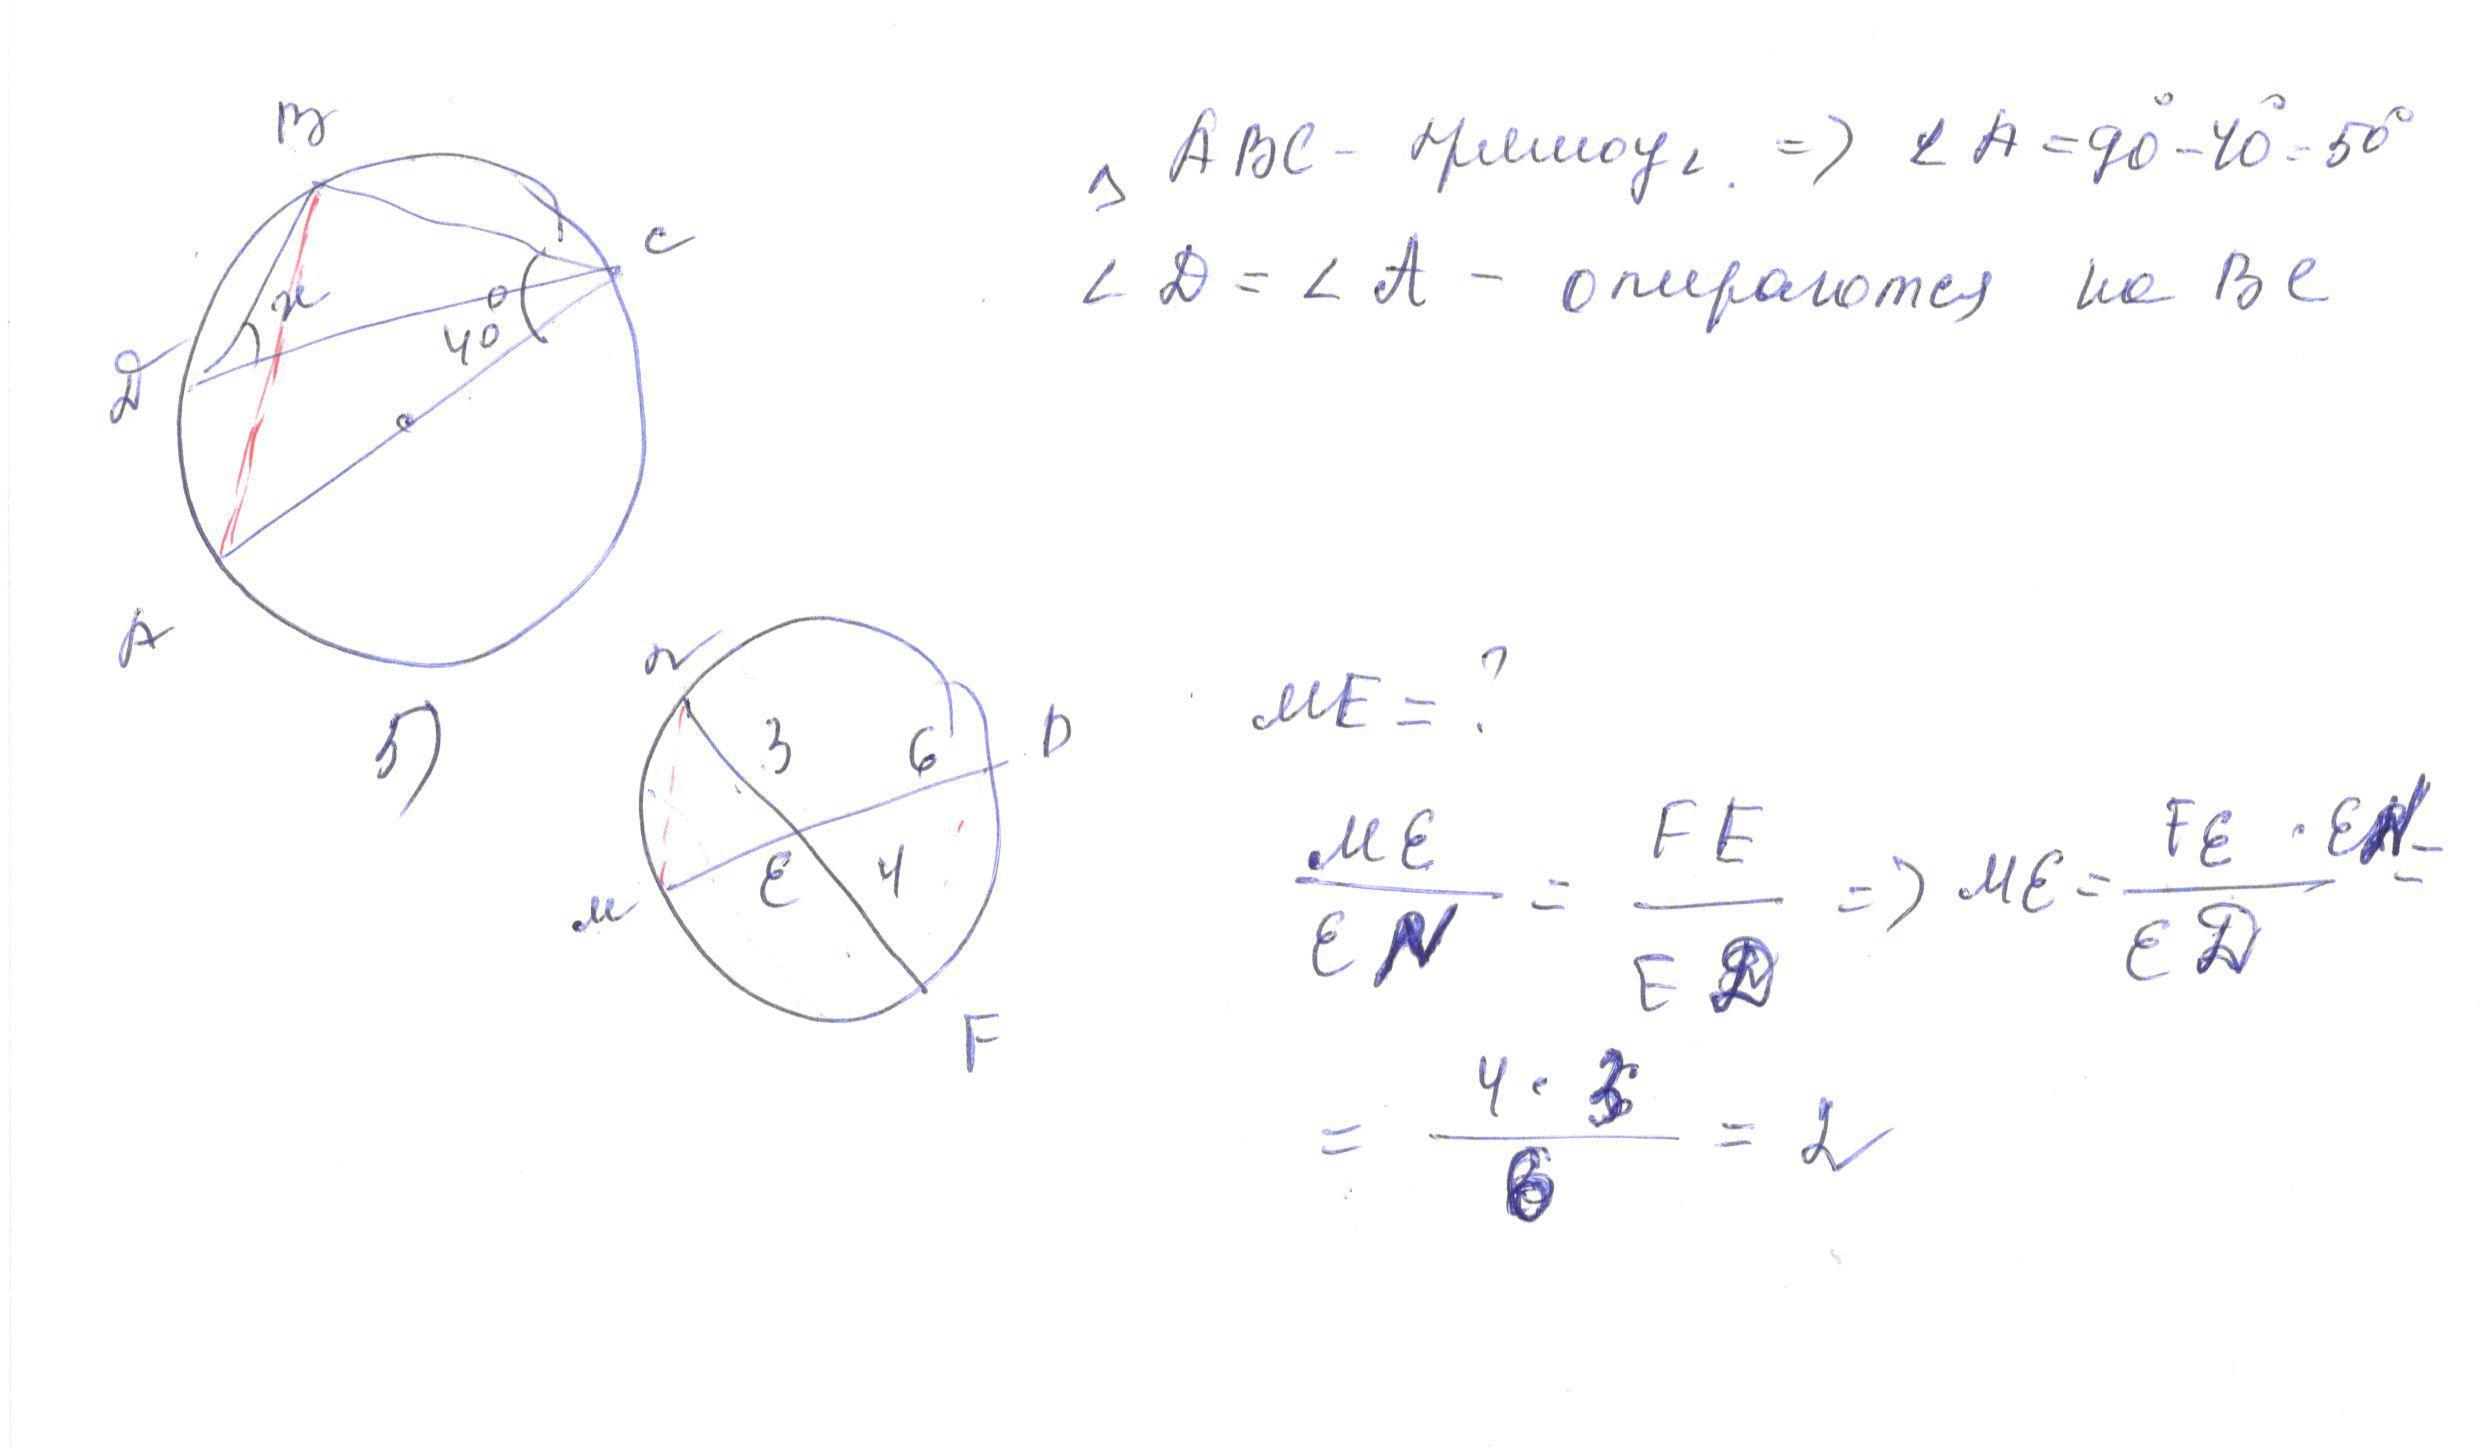 B
C
x
40°
D
A
△ ABC - прямоуг. => ∠ A = 90° - 40° = 50°
∠ D = ∠ A - опираются на BC
5)
N
3
6
D
E
4
M
F
ME = ?
ME / EN = FE / ED => ME = FE · EN / ED =
= 4 · 3 / 6 = 2